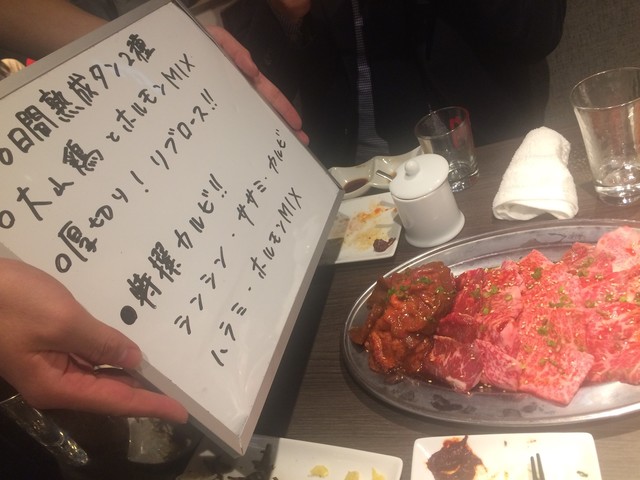 日間熟成タン2種
○大山鶏とホルモンMIX
○厚切り！リブロース!!
●特撰カルビ!!
ランシン・ササミ・カルビ
ハラミ・ホルモンMIX